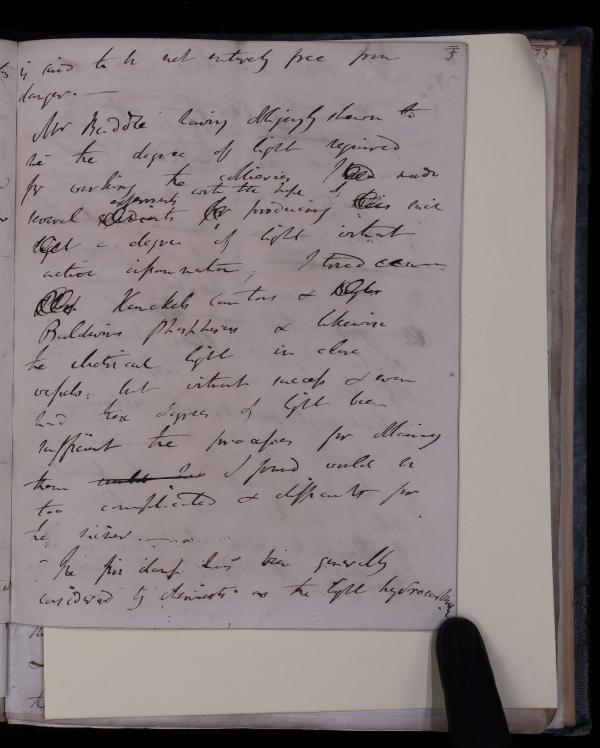 5
is said to be not entirely free from
danger. —
Mr Buddle having obligingly shewn to
me the degree of light required
for working the collieries I made
several experiments with the hope of producing such
a degree of light without
active inflammation; I tried
Kunckel's Canton's &
Baldwin's phosphorus & likewise
the electrical light in close
vessels. but without success & even
had these degrees of light been
sufficient the processes for obtaining
them I found would be
too complicated & difficult for
the miner. —
The fire damp has been generally
considered by chemists as the light hydrocarbon